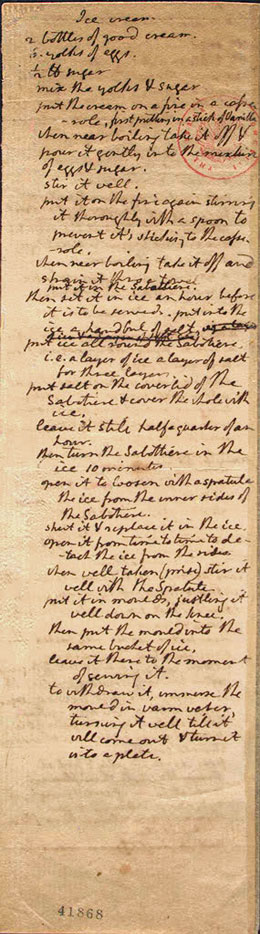 Ice cream.
2 bottles of good cream.
6. yolks of eggs.
1/2 lb sugar
mix the yolks & sugar
put the cream on a fire in a casse-
-role, first putting in a stick of Vanilla.
when near boiling take it off &
pour it gently into the mixture
of eggs & sugar.
stir it well.
put it on the fire again stirring
it thoroughly with a spoon to
prevent it's sticking to the casse-
-role.
when near boiling take it off and
strain it thro' a towel.
put it in the Sabottiere.
then set it in ice an hour before
it is to be served. put into the
ice a handful of salt.
put ice all around the Sabottiere.
i.e. a layer of ice a layer of salt
for three layers.
put salt on the coverlid of the
Sabotiere & cover the whole with
ice.
leave it still half a quarter of an
hour.
then turn the Sabottiere in the
ice 10 minutes.
open it to loosen with a spatula
the ice from the inner sides of
the Sabotiere.
shut it & replace it in the ice.
open it from time to time to de-
-tach the ice from the sides.
when well taken (prise) stir it
well with the Spatula.
put it in moulds, justling it
well down on the knee.
then put the mould into the
same bucket of ice.
leave it there to the moment
of serving it.
to withdraw it, immerse the
mould in warm water,
turning it well till it
will come out & turn it
into a plate.
41868